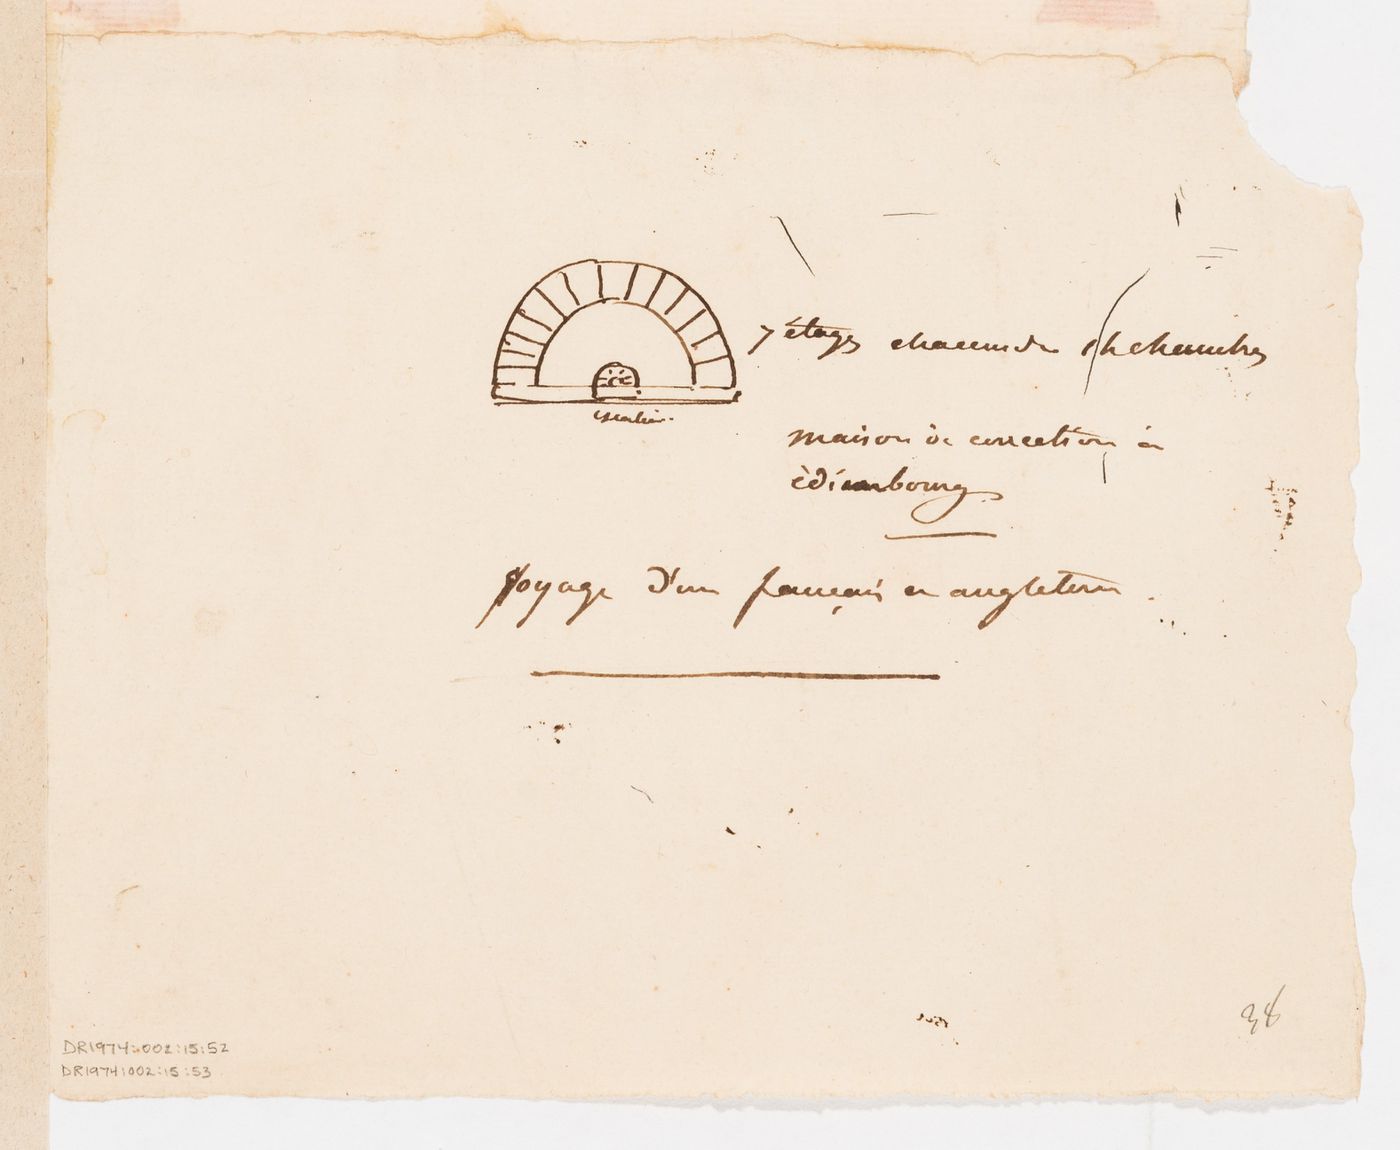 7 étages chacun de chambres
escalier.
maison de correction à
èdimbourg
Voyage d'un français en angleterre .
38
DR1974:002:15:52
DR1974:002:15:53